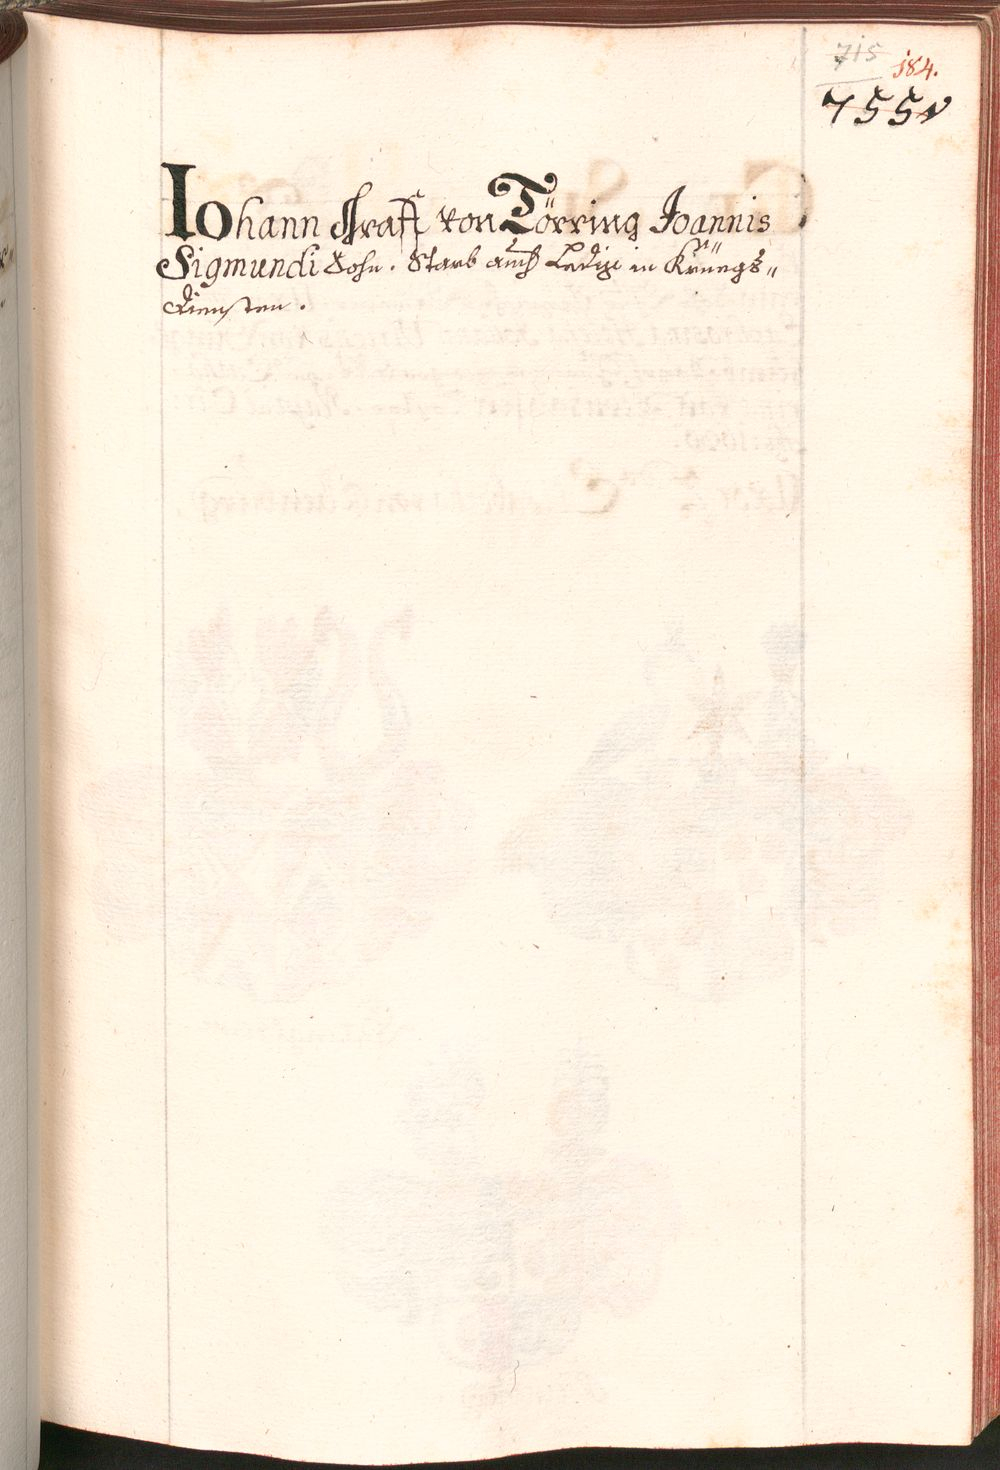 715
184.
755v
Iohann Graff von Törring Joannis
Sigmundi Sohn. Starb auch Ledig in Krüegs„
diensten.